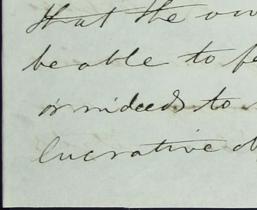 that the
be able to
or indeed to
lucrative